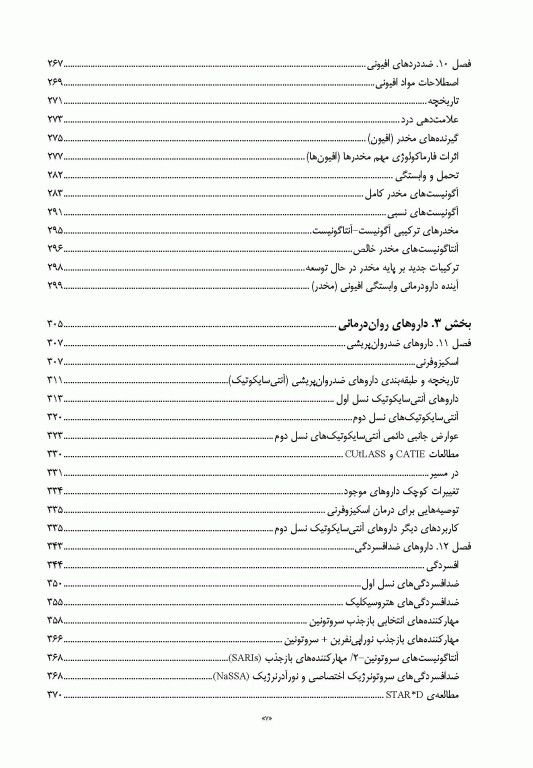 فصل ۱۰. ضددردهای افیونی........................۲۶۷
اصطلاحات مواد افیونی........................۲۶۹
تاریخچه........................۲۷۱
علامت‌دهی درد........................۲۷۳
گیرنده‌های مخدر (افیون)........................۲۷۵
اثرات فارماکولوژی مهم مخدرها (افیون‌ها)........................۲۷۷
تحمل و وابستگی........................۲۸۲
آگونیست‌های مخدر کامل........................۲۸۳
آگونیست‌های نسبی........................۲۹۱
مخدرهای ترکیبی آگونیست-آنتاگونیست........................۲۹۵
آنتاگونیست‌های مخدر خالص........................۲۹۶
ترکیبات جدید بر پایه مخدر در حال توسعه........................۲۹۸
آینده دارودرمانی وابستگی افیونی (مخدر)........................۲۹۹
بخش ۳. داروهای روان‌درمانی........................۳۰۵
فصل ۱۱. داروهای ضدروان‌پریشی........................۳۰۷
اسکیزوفرنی........................۳۰۷
تاریخچه و طبقه‌بندی داروهای ضدروان‌پریشی (آنتی‌سایکوتیک)........................۳۱۱
داروهای آنتی‌سایکوتیک نسل اول........................۳۱۳
آنتی‌سایکوتیک‌های نسل دوم........................۳۲۰
عوارض جانبی دائمی آنتی‌سایکوتیک‌های نسل دوم........................۳۲۳
مطالعات CATIE و CUtLASS........................۳۳۰
در مسیر........................۳۳۱
تغییرات کوچک داروهای موجود........................۳۳۴
توصیه‌هایی برای درمان اسکیزوفرنی........................۳۳۵
کاربردهای دیگر داروهای آنتی‌سایکوتیک نسل دوم........................۳۳۵
فصل ۱۲. داروهای ضدافسردگی........................۳۴۳
افسردگی........................۳۴۴
ضدافسردگی‌های نسل اول........................۳۵۰
ضدافسردگی‌های هتروسیکلیک........................۳۵۵
مهارکننده‌های انتخابی بازجذب سروتونین........................۳۵۸
مهارکننده‌های بازجذب نوراپی‌نفرین + سروتونین........................۳۶۶
آنتاگونیست‌های سروتونین-۲/ مهارکننده‌های بازجذب (SARIs)........................۳۶۸
ضدافسردگی‌های سروتونرژیک اختصاصی و نورآدرنرژیک (NaSSA)........................۳۶۸
مطالعه‌ی STAR*D........................۳۷۰
«۷»